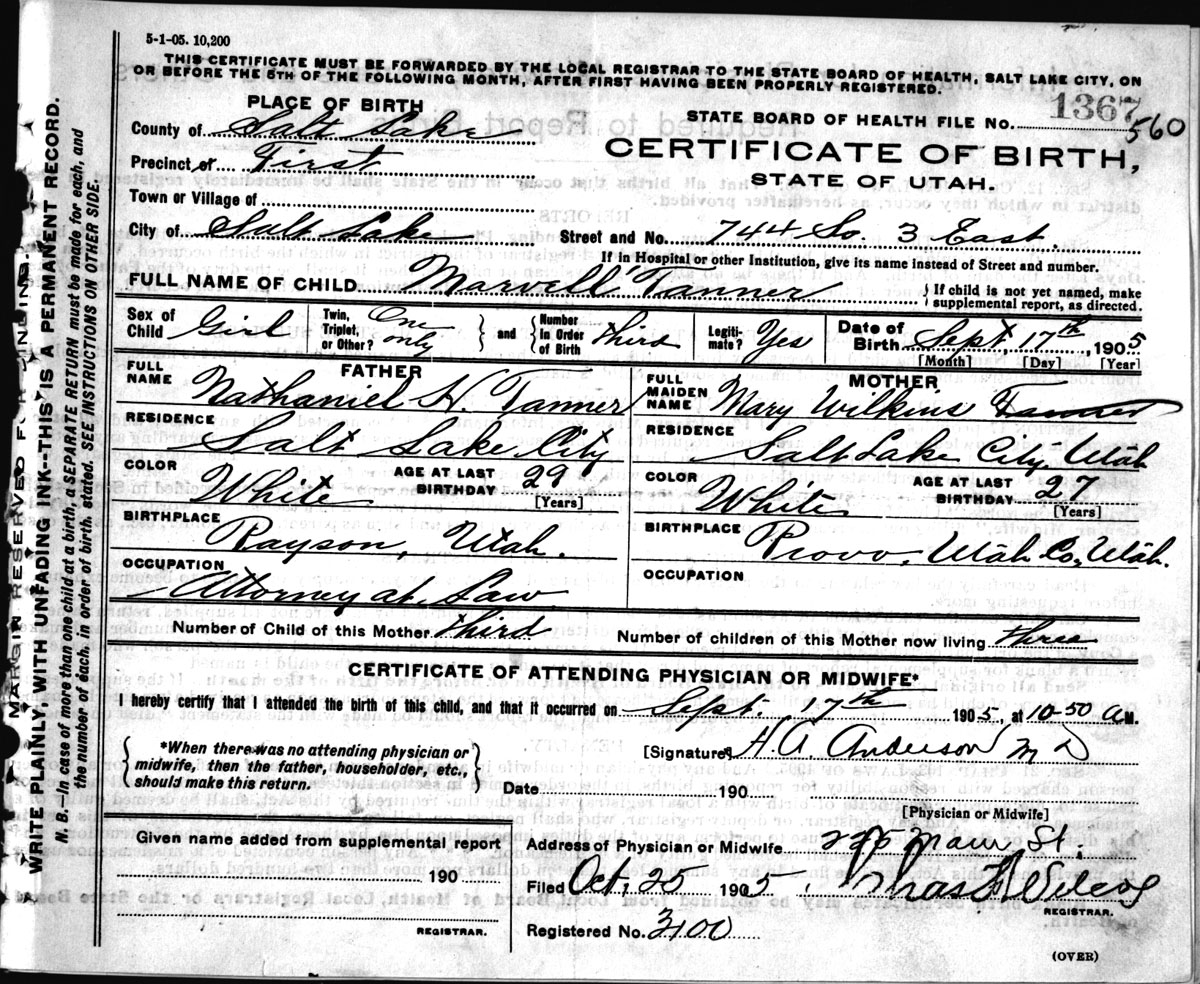 5-1-05. 10,200
THIS CERTIFICATE MUST BE FORWARDED BY THE LOCAL REGISTRAR TO THE STATE BOARD OF HEALTH, SALT LAKE CITY, ON
OR BEFORE THE 5TH OF THE FOLLOWING MONTH, AFTER FIRST HAVING BEEN PROPERLY REGISTERED.
PLACE OF BIRTH
STATE BOARD OF HEALTH FILE No. 1367
560
County of Salt Lake
Precinct of First
CERTIFICATE OF BIRTH,
STATE OF UTAH.
Town or Village of
City of Salt Lake Street and No. 744 So. 3 East.
If in Hospital or other Institution, give its name instead of Street and number.
FULL NAME OF CHILD Marvell Tanner { If child is not yet named, make
supplemental report, as directed.
Sex of Child Girl Twin, Triplet, or Other? One only } and { Number in Order of Birth third Legitimate? Yes Date of Birth Sept, 17th, 1905
[Month] [Day] [Year]
FATHER
FULL NAME Nathaniel H. Tanner
RESIDENCE Salt Lake City
COLOR White AGE AT LAST BIRTHDAY 29 [Years]
BIRTHPLACE Payson, Utah.
OCCUPATION Attorney at Law
MOTHER
FULL MAIDEN NAME Mary Wilkins Tanner
RESIDENCE Salt Lake City Utah
COLOR White AGE AT LAST BIRTHDAY 27 [Years]
BIRTHPLACE Provo, Utah Co, Utah.
OCCUPATION
Number of Child of this Mother third Number of children of this Mother now living three
CERTIFICATE OF ATTENDING PHYSICIAN OR MIDWIFE*
I hereby certify that I attended the birth of this child, and that it occurred on Sept. 17th 1905, at 10-50 A M.
{ *When there was no attending physician or
midwife, then the father, householder, etc.,
should make this return. }
[Signature] H. A. Anderson M D
Date 190
[Physician or Midwife]
Given name added from supplemental report
190
REGISTRAR.
Address of Physician or Midwife Main St.
Filed Oct, 25 1905.
REGISTRAR.
Registered No. 3100
(OVER)
MARGIN RESERVED FOR BINDING.
WRITE PLAINLY, WITH UNFADING INK--THIS IS A PERMANENT RECORD.
N. B.--In case of more than one child at a birth, a SEPARATE RETURN must be made for each, and
the number of each, in order of birth, stated. SEE INSTRUCTIONS ON OTHER SIDE.